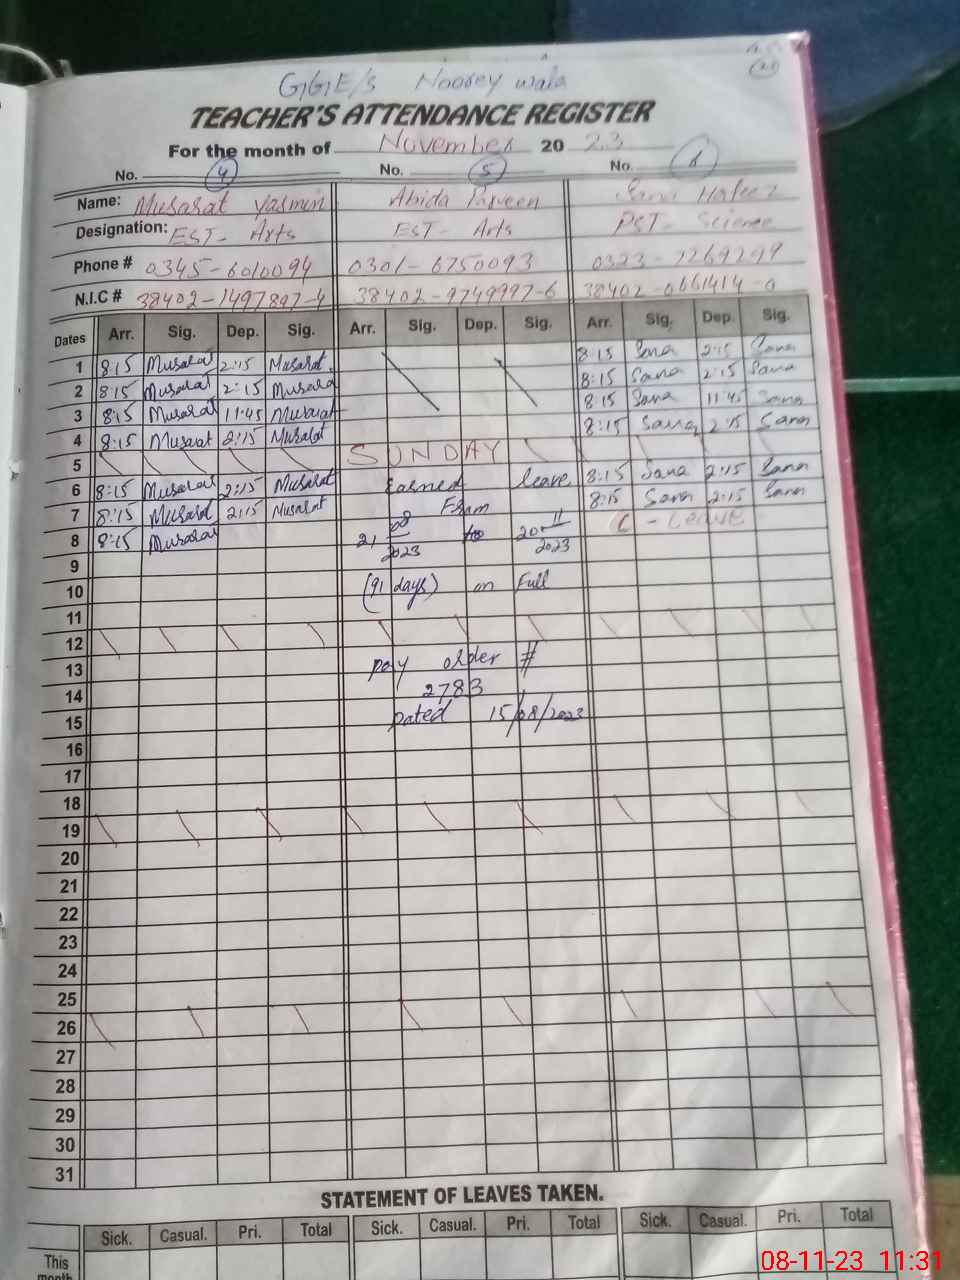 GGE/S Noorey wala
TEACHER'S ATTENDANCE REGISTER
For the month of November 20 23
No. 4 No. 5 No. 6
Name: Musarat Yasmin Abida Parveen Sana Hafeez
Designation: EST- Arts EST- Arts PST- Science
Phone # 0345-6010094 0301-6750093 0323-7269299
N.I.C # 38402-1497897-4 38402-9749997-6 38402-0661414-0
Dates Arr. Sig. Dep. Sig. Arr. Sig. Dep. Sig. Arr. Sig. Dep. Sig.
1 8:15 Musarat 2:15 Musarat 8:15 Sana 2:15 Sana
2 8:15 Musarat 2:15 Musarat 8:15 Sana 2:15 Sana
3 8:15 Musarat 11:45 Musarat 8:15 Sana 11:45 Sana
4 8:15 Musarat 2:15 Musarat 8:15 Sana 2:15 Sana
5 SUNDAY
6 8:15 Musarat 2:15 Musarat Earned leave 8:15 Sana 2:15 Sana
7 8:15 Musarat 2:15 Musarat From 8:15 Sana 2:15 Sana
8 8:15 Musarat 21 08/2023 to 20 11/2023 C - Leave
9
10 (91 days) on Full
11
12
13 pay order #
14 2783
15 Dated 15/08/2023
16
17
18
19
20
21
22
23
24
25
26
27
28
29
30
31
STATEMENT OF LEAVES TAKEN.
Sick. Casual. Pri. Total Sick. Casual. Pri. Total Sick. Casual. Pri. Total
This
month
08-11-23 11:31